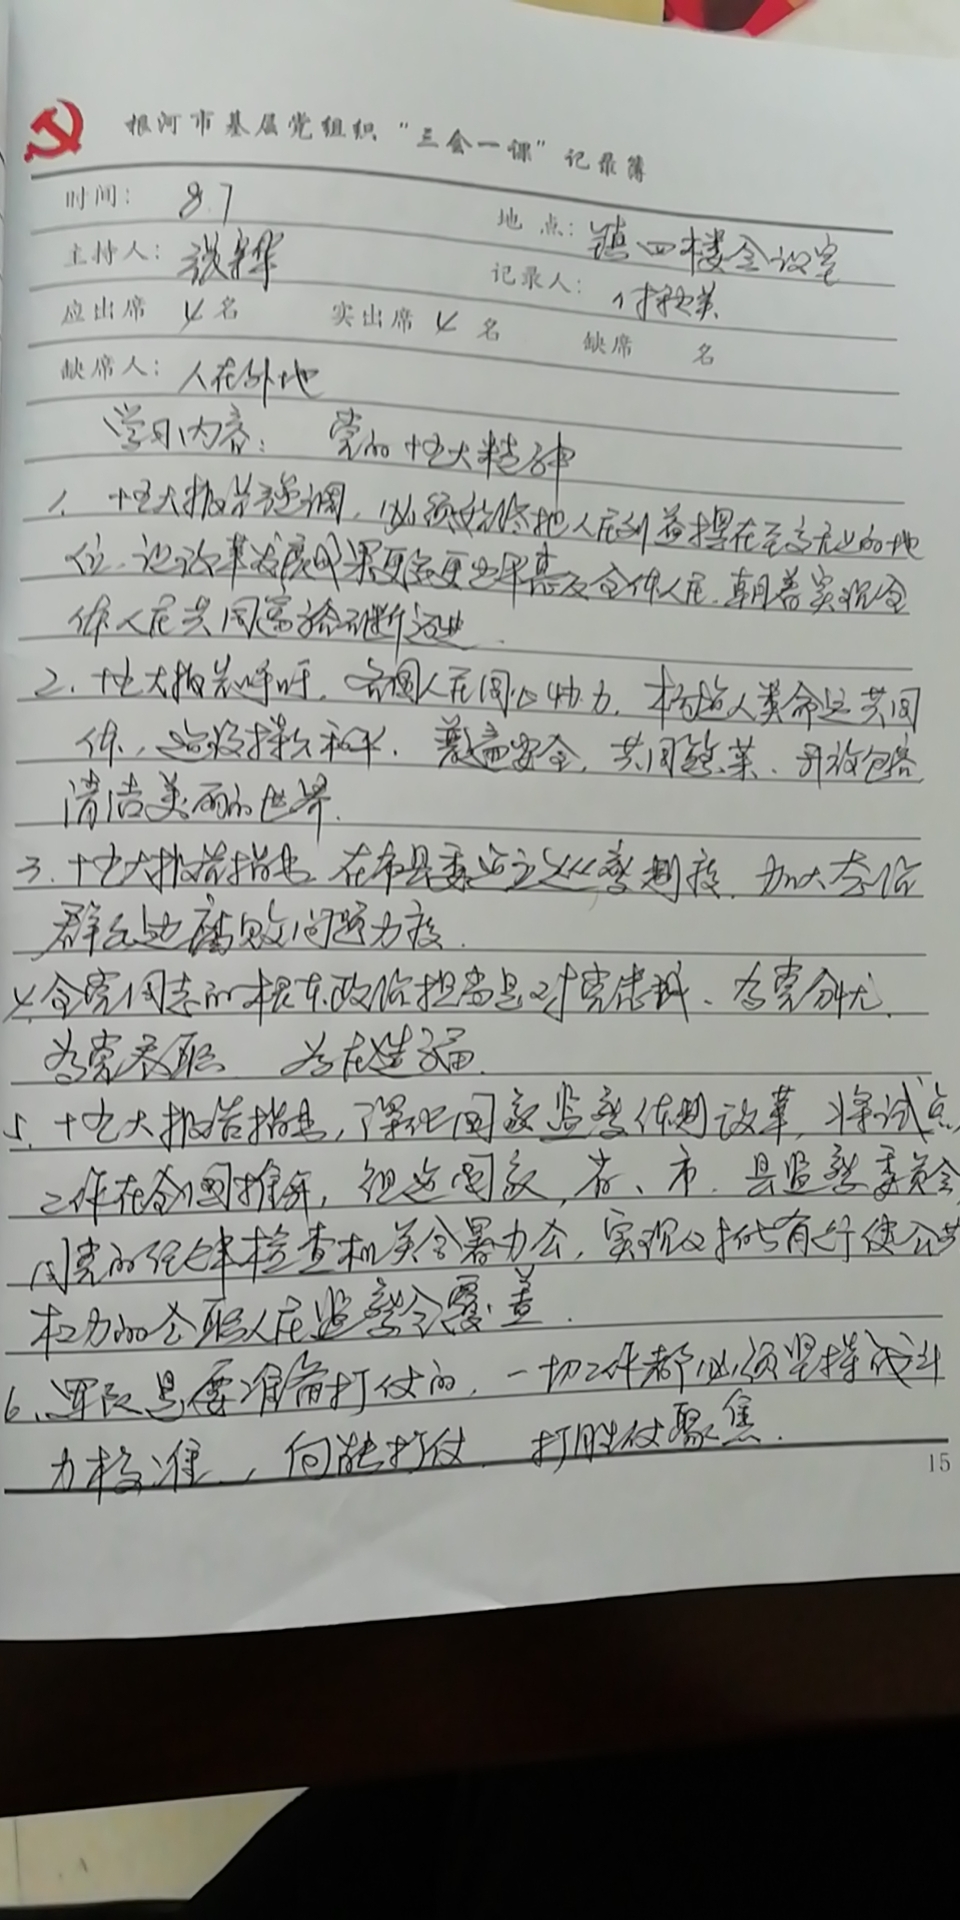 根河市基层党组织“三会一课”记录簿
时间： 8.7 地点：镇四楼会议室
主持人： 记录人：
应出席 4 名 实出席 4 名 缺席 名
缺席人：人在外地
学习内容： 党的十九大精神
1. 十九大报告强调，必须始终把人民利益摆在至高无上的地
位，让改革发展成果更多更公平惠及全体人民，朝着实现全
体人民共同富裕不断迈进.
2. 十九大报告呼吁，各国人民同心协力，构建人类命运共同
体，建设持久和平、普遍安全、共同繁荣、开放包容
清洁美丽的世界.
3. 十九大报告指出 在市县委建立巡察制度，加大整治
群众身边腐败问题力度.
4. 全党同志的根本政治担当是对党忠诚、为党分忧
为党尽职 为民造福.
5. 十九大报告指出，深化国家监察体制改革，将试点
工作在全国推开，组建国家、省、市、县监察委员会
同党的纪律检查机关合署办公，实现对所有行使公共
权力的公职人员监察全覆盖.
6、军队是要准备打仗的，一切工作都必须坚持战斗
力标准，向能打仗、打胜仗聚焦.
15